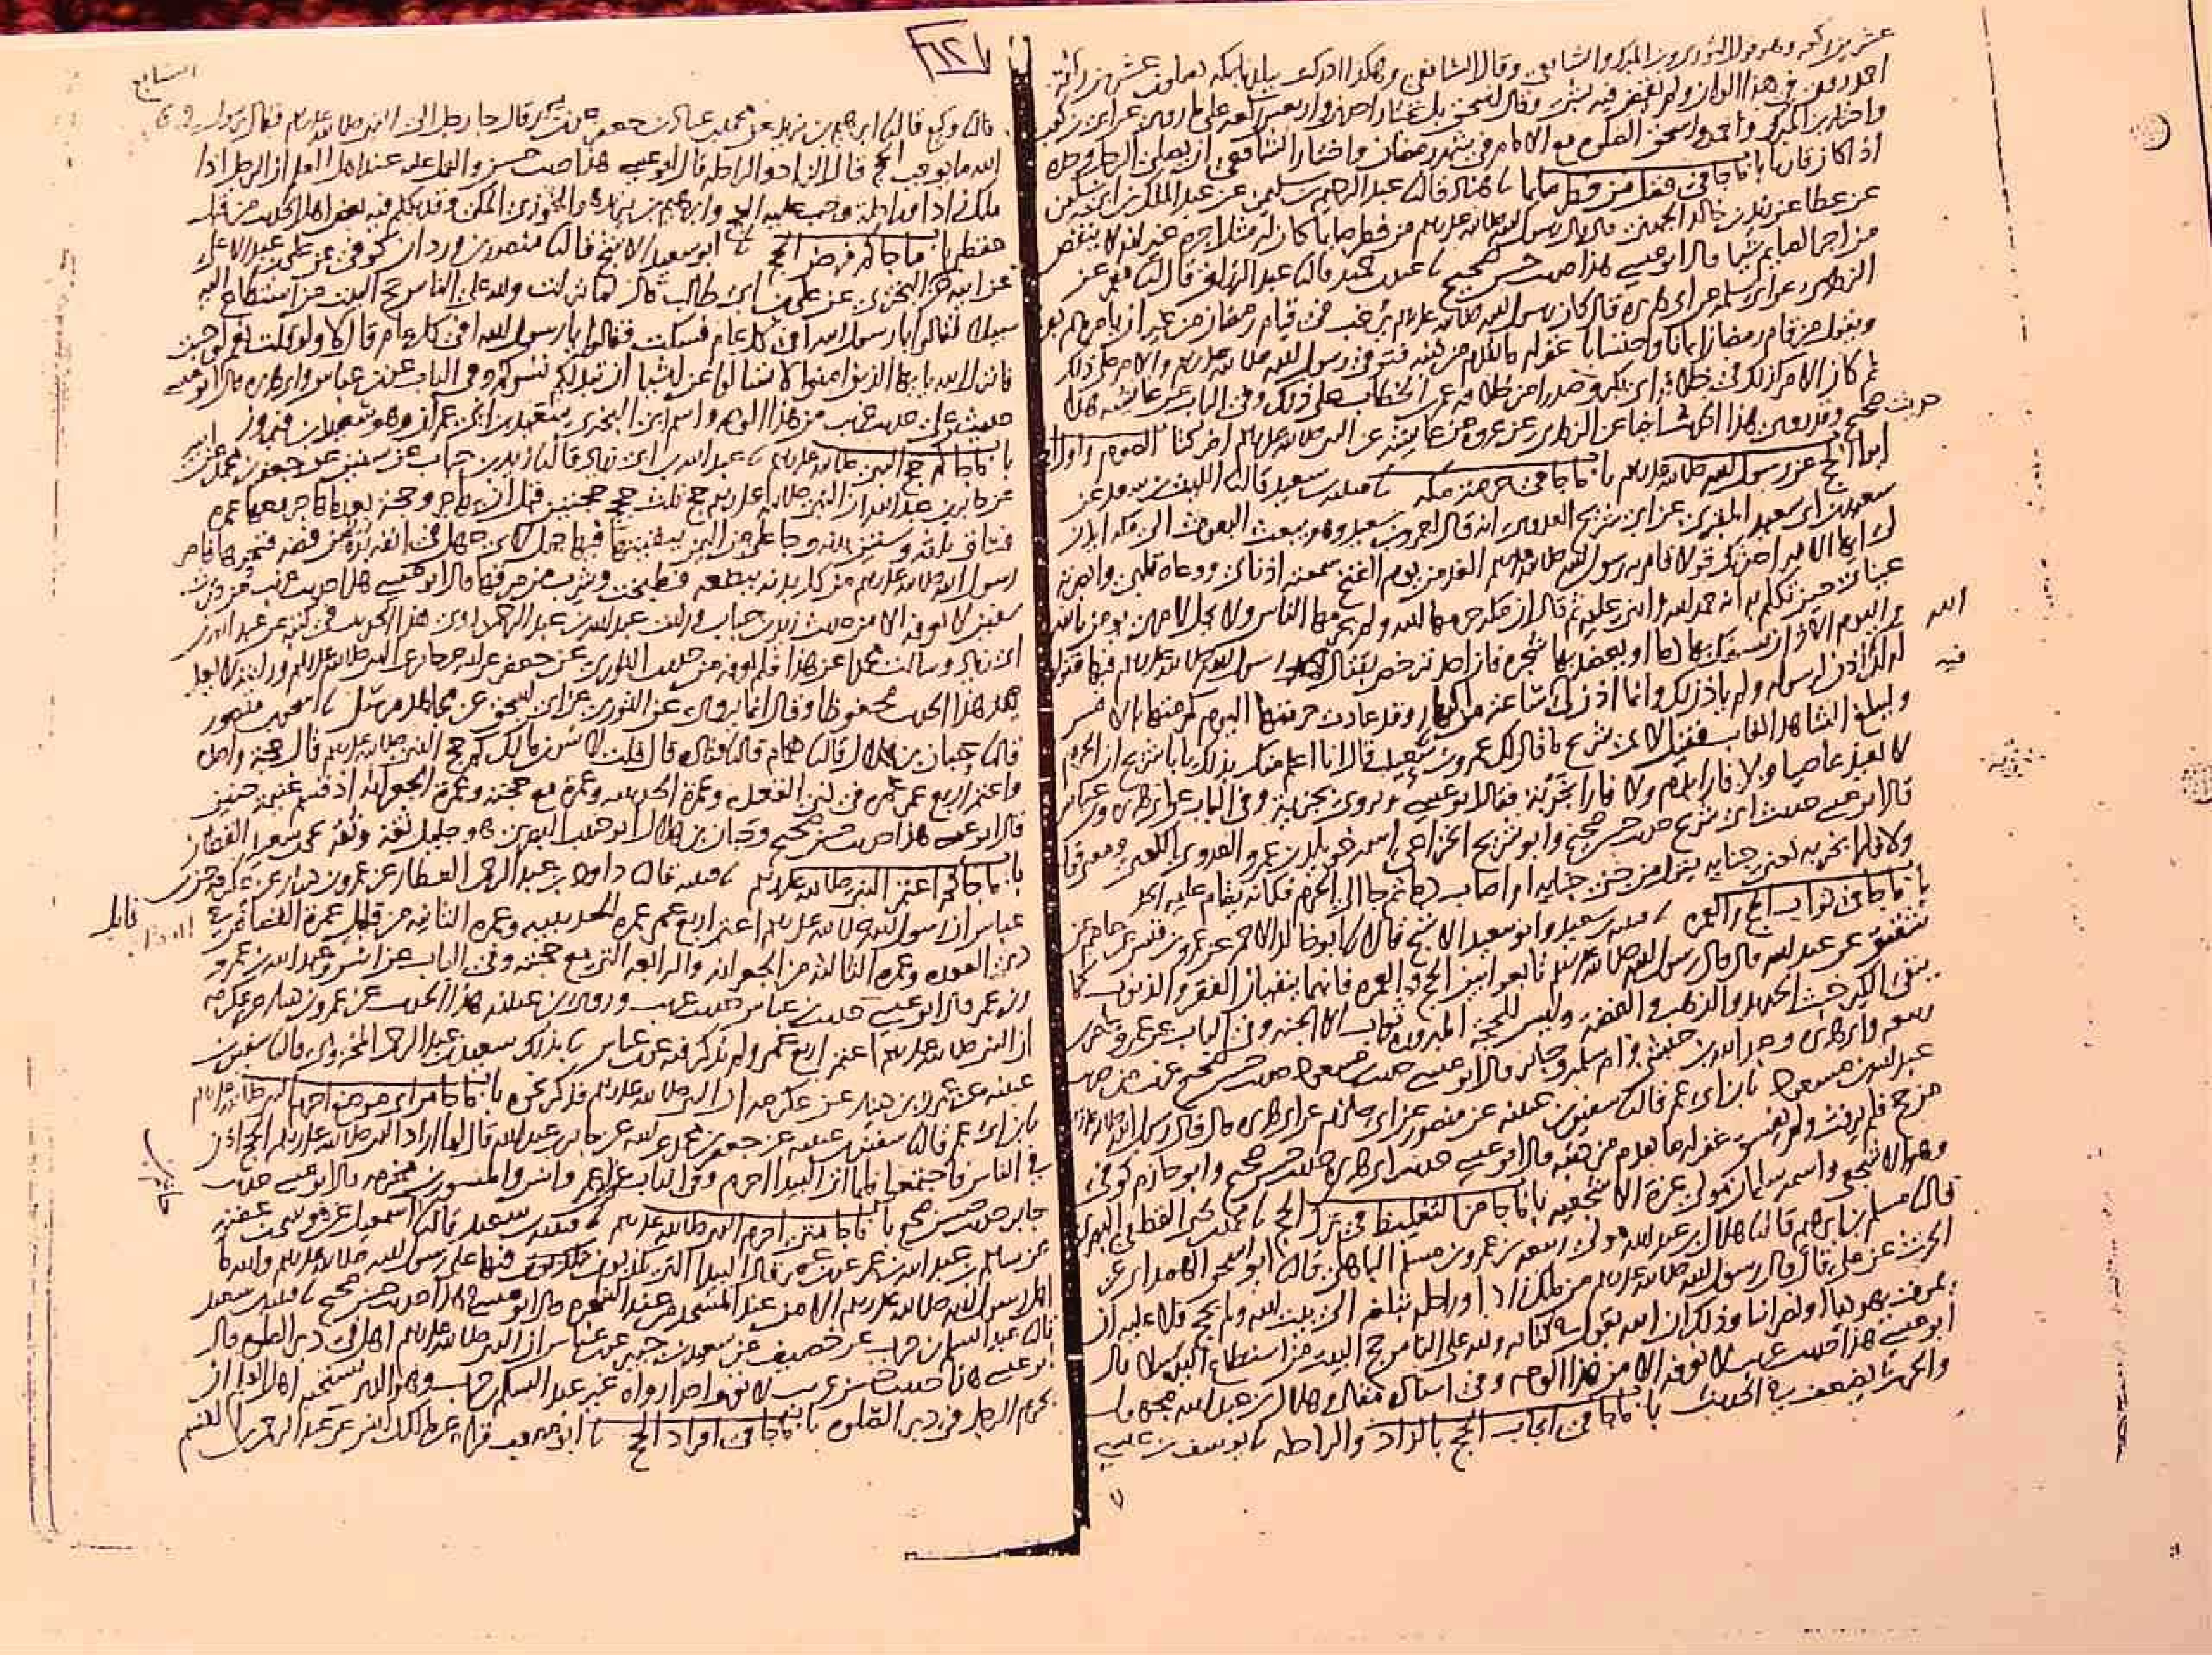 عشرين ركعة وهو قول الثوري وابن المبارك والشافعي وقال الشافعي وهكذا ادركت ببلدنا بمكة يصلون عشرين ركعة
احمد روي في هذا الوان ولم يقض فيه بشي وقال اسحق بل نختار احدى واربعين ركعة على ما روي عن ابي بن كعب
واختار ابن المبارك واحمد واسحق الصلوة مع الامام في شهر رمضان واختار الشافعي ان يصلي الرجل وحده
اذا كان قاريا باب ما جا في فضل من فطر صايما نا هناد قال نا عبد الرحيم بن سليمن عن عبد الملك بن ابي سليمن
عن عطا عن زيد بن خالد الجهني قال قال رسول الله صلى الله عليه وسلم من فطر صايما كان له مثل اجره غير انه لا ينقص
من اجر الصايم شيا قال ابو عيسى هذا حديث حسن صحيح نا عبد بن حميد قال نا عبد الرزاق قال نا معمر عن
الزهري عن ابي سلمة عن ابي هريرة قال كان رسول الله صلى الله عليه وسلم يرغب في قيام رمضان من غير ان يامرهم
ويقول من قام رمضان ايمانا واحتسابا غفر له ما تقدم من ذنبه فتوفي رسول الله صلى الله عليه وسلم والامر على ذلك
ثم كان الامر كذلك في خلافة ابي بكر وصدرا من خلافة عمر بن الخطاب على ذلك وفي الباب عن عايشة هذا
حديث صحيح وقد روي هذا الحديث ايضا عن الزهري عن عروة عن عايشة عن النبي صلى الله عليه وسلم اخر كتاب الصوم واول
ابواب الحج عن رسول الله صلى الله عليه وسلم باب ما جا في حرمة مكة نا قتيبة بن سعيد قال نا الليث بن سعد عن
سعيد بن ابي سعيد المقبري عن ابي شريح العدوي انه قال لعمرو بن سعيد وهو يبعث البعوث الى مكة ايذن
لي ايها الامير احدثك قولا قام به رسول الله صلى الله عليه وسلم الغد من يوم الفتح سمعته اذناي ووعاه قلبي وابصرته
عيناي حين تكلم به انه حمد الله واثنى عليه ثم قال ان مكة حرمها الله ولم يحرمها الناس ولا يحل لامرئ يومن بالله
واليوم الاخر ان يسفك بها دما او يعضد بها شجرة فان احد ترخص بقتال رسول الله صلى الله عليه وسلم فيها فقولوا
الله
له ان الله اذن لرسوله ولم ياذن لك وانما اذن لي فيه ساعة من النهار وقد عادت حرمتها اليوم كحرمتها بالامس
فيه
وليبلغ الشاهد الغايب فقيل لابي شريح ما قال لك عمرو بن سعيد قال انا اعلم منك بذلك يا با شريح ان الحرم
لا يعيذ عاصيا ولا فارا بدم ولا فارا بخربة فقال ابو عيسى ويروى بخزية وفي الباب عن ابي هريرة وابن عباس
قال ابو عيسى حديث ابي شريح حديث حسن صحيح وابو شريح الخزاعي اسمه خويلد بن عمرو العدوي الكعبي ومعنى قوله
ولا فارا بخربة يعني جناية يقول من جنى جناية او اصاب دما ثم جا الى الحرم فانه يقام عليه الحد
باب ما جا في ثواب الحج والعمرة نا قتيبة بن سعيد وابو سعيد الاشج قالا نا ابو خالد الاحمر عن عمرو بن قيس عن عاصم عن
شقيق عن عبد الله قال قال رسول الله صلى الله عليه وسلم تابعوا بين الحج والعمرة فانهما ينفيان الفقر والذنوب كما
ينفي الكير خبث الحديد والذهب والفضة وليس للحجة المبرورة ثواب الا الجنة وفي الباب عن عمر وعامر بن
ربيعة وابي هريرة وعبد الله بن حبشي وام سلمة وجابر قال ابو عيسى حديث ابن مسعود حديث حسن صحيح
عبد الله بن مسعود نا ابن ابي عمر قال نا سفين بن عيينة عن منصور عن ابي حازم عن ابي هريرة قال قال رسول الله
من حج فلم يرفث ولم يفسق غفر له ما تقدم من ذنبه قال ابو عيسى حديث ابي هريرة حديث حسن صحيح وابو حازم كوفي
وهو الاشجعي واسمه سلمان مولى عزة الاشجعية باب ما جا من التغليظ في ترك الحج نا محمد بن يحيى القطعي البصري
قال نا مسلم بن ابرهيم قال نا هلال بن عبد الله مولى ربيعة بن عمرو بن مسلم الباهلي قال نا ابو اسحق الهمداني عن
الحرث عن علي قال قال رسول الله صلى الله عليه وسلم من ملك زادا وراحلة تبلغه الى بيت الله ولم يحج فلا عليه ان
يموت يهوديا او نصرانيا وذلك ان الله يقول في كتابه ولله على الناس حج البيت من استطاع اليه سبيلا قال
ابو عيسى هذا حديث غريب لا نعرفه الا من هذا الوجه وفي اسناده مقال وهلال بن عبد الله مجهول
والحرث يضعف في الحديث باب ما جا في ايجاب الحج بالزاد والراحلة نا يوسف بن عيسى
١٢٠
السابع
قال نا وكيع قال نا ابرهيم بن يزيد عن محمد بن عباد بن جعفر عن ابن عمر قال جا رجل الى النبي صلى الله عليه وسلم فقال يا رسول
الله ما يوجب الحج قال الزاد والراحلة قال ابو عيسى هذا حديث حسن والعمل عليه عند اهل العلم ان الرجل اذا
ملك زادا وراحلة وجب عليه الحج وابرهيم بن يزيد هو الخوزي المكي وقد تكلم فيه بعض اهل الحديث من قبل
حفظه باب ما جا كم فرض الحج نا ابو سعيد الاشج قال نا منصور بن وردان كوفي عن علي بن عبد الاعلى
عن ابيه عن ابي البختري عن علي بن ابي طالب قال لما نزلت ولله على الناس حج البيت من استطاع اليه
سبيلا قالوا يا رسول الله افي كل عام فسكت فقالوا يا رسول الله افي كل عام قال لا ولو قلت نعم لوجبت
فانزل الله يا يها الذين امنوا لا تسالوا عن اشيا ان تبد لكم تسوكم وفي الباب عن ابن عباس وابي هريرة قال ابو عيسى
حديث علي حديث غريب من هذا الوجه واسم ابي البختري سعيد بن ابي عمران وهو سعيد بن فيروز
باب ما جا كم حج النبي صلى الله عليه وسلم نا عبد الله بن ابي زياد قال نا زيد بن حباب عن سفين عن جعفر بن محمد عن ابيه
عن جابر بن عبد الله ان النبي صلى الله عليه وسلم حج ثلث حجج حجتين قبل ان يهاجر وحجة بعد ما هاجر معها عمرة
فساق ثلثة وستين بدنة وجا علي من اليمن ببقيتها فيها جمل لابي جهل في انفه برة من فضة فنحرها فامر
رسول الله صلى الله عليه وسلم من كل بدنة ببضعة فطبخت وشرب من مرقها قال ابو عيسى هذا حديث غريب من حديث
سفين لا نعرفه الا من حديث زيد بن حباب ورايت عبد الله بن عبد الرحمن روى هذا الحديث في كتبه عن عبد الله بن
ابي زياد وسالت محمدا عن هذا فلم يعرفه من حديث الثوري عن جعفر عن ابيه عن جابر عن النبي صلى الله عليه وسلم ورايته لا يعد
هذا الحديث محفوظا وقال انما يروى عن الثوري عن ابي اسحق عن مجاهد مرسل نا اسحق بن منصور
قال نا حبان بن هلال قال نا همام قال نا قتادة قال قلت لانس بن مالك كم حج النبي صلى الله عليه وسلم قال حجة واحدة
واعتمر اربع عمر عمرة في ذي القعدة وعمرة الحديبية وعمرة مع حجته وعمرة الجعرانة اذ قسم غنيمة حنين
قال ابو عيسى هذا حديث حسن صحيح وحبان بن هلال ابو حبيب البصري هو جليل ثقة وثقه يحيى بن سعيد القطان
باب ما جا كم اعتمر النبي صلى الله عليه وسلم نا قتيبة قال نا داود بن عبد الرحمن العطار عن عمرو بن دينار عن عكرمة عن ابن
عباس ان رسول الله صلى الله عليه وسلم اعتمر اربع عمر عمرة الحديبية وعمرة الثانية من قابل عمرة القضا في
قابل
ذي القعدة وعمرة الثالثة من الجعرانة والرابعة التي مع حجته وفي الباب عن انس وعبد الله بن عمرو
وابن عمر قال ابو عيسى حديث ابن عباس حديث غريب وروى ابن عيينة هذا الحديث عن عمرو بن دينار عن عكرمة
ان النبي صلى الله عليه وسلم اعتمر اربع عمر ولم يذكر فيه عن ابن عباس نا بذلك سعيد بن عبد الرحمن المخزومي قال نا سفين بن
عيينة عن عمرو بن دينار عن عكرمة ان النبي صلى الله عليه وسلم فذكر نحوه باب ما جا من اي موضع احرم النبي صلى الله عليه وسلم
نا ابن ابي عمر قال نا سفين بن عيينة عن جعفر بن محمد عن ابيه عن جابر بن عبد الله قال لما اراد النبي صلى الله عليه وسلم الحج اذن
في الناس فاجتمعوا فلما اتى البيدا احرم وفي الباب عن ابن عمر وانس والمسور بن مخرمة قال ابو عيسى حديث
جابر حديث حسن صحيح باب ما جا متى احرم النبي صلى الله عليه وسلم نا قتيبة بن سعيد قال نا حاتم بن اسمعيل عن موسى بن عقبة
حاتم بن
عن سالم بن عبد الله بن عمر عن ابن عمر قال البيدا التي تكذبون فيها على رسول الله صلى الله عليه وسلم والله ما
اهل رسول الله صلى الله عليه وسلم الا من عند المسجد من عند الشجرة قال ابو عيسى هذا حديث حسن صحيح نا قتيبة بن سعيد
قال نا عبد السلام بن حرب عن خصيف عن سعيد بن جبير عن ابن عباس ان النبي صلى الله عليه وسلم اهل في دبر الصلوة قال
ابو عيسى هذا حديث حسن غريب لا نعرف احدا رواه غير عبد السلام بن حرب وهو الذي يستحبه اهل العلم ان
يحرم الرجل في دبر الصلوة باب ما جا في افراد الحج نا ابو مصعب قراءة عن مالك بن انس عن عبد الرحمن بن القسم